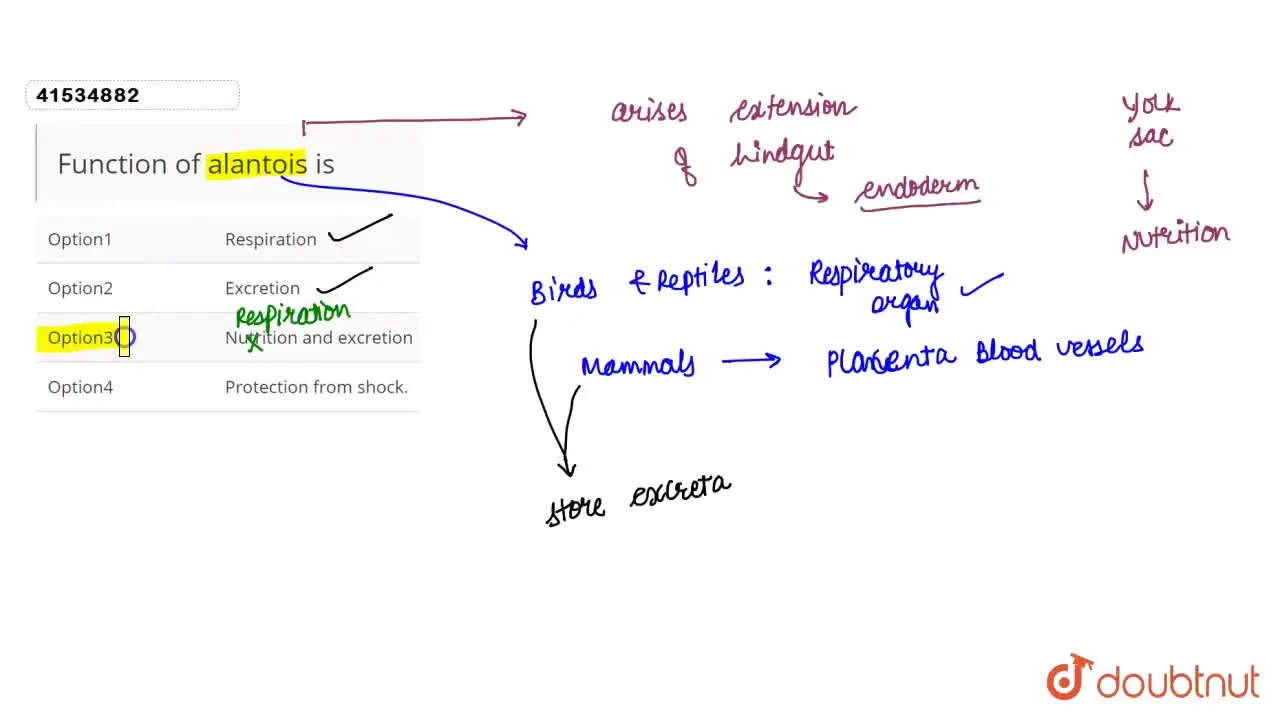 41534882
Function of alantois is
Option1 Respiration
Option2 Excretion
Respiration
Option3 Nutrition and excretion
Option4 Protection from shock.
arises extension
of hindgut
endoderm
Yolk
sac
Nutrition
Birds & Reptiles : Respiratory
organ
Mammals → Placenta Blood vessels
store excreta
doubtnut